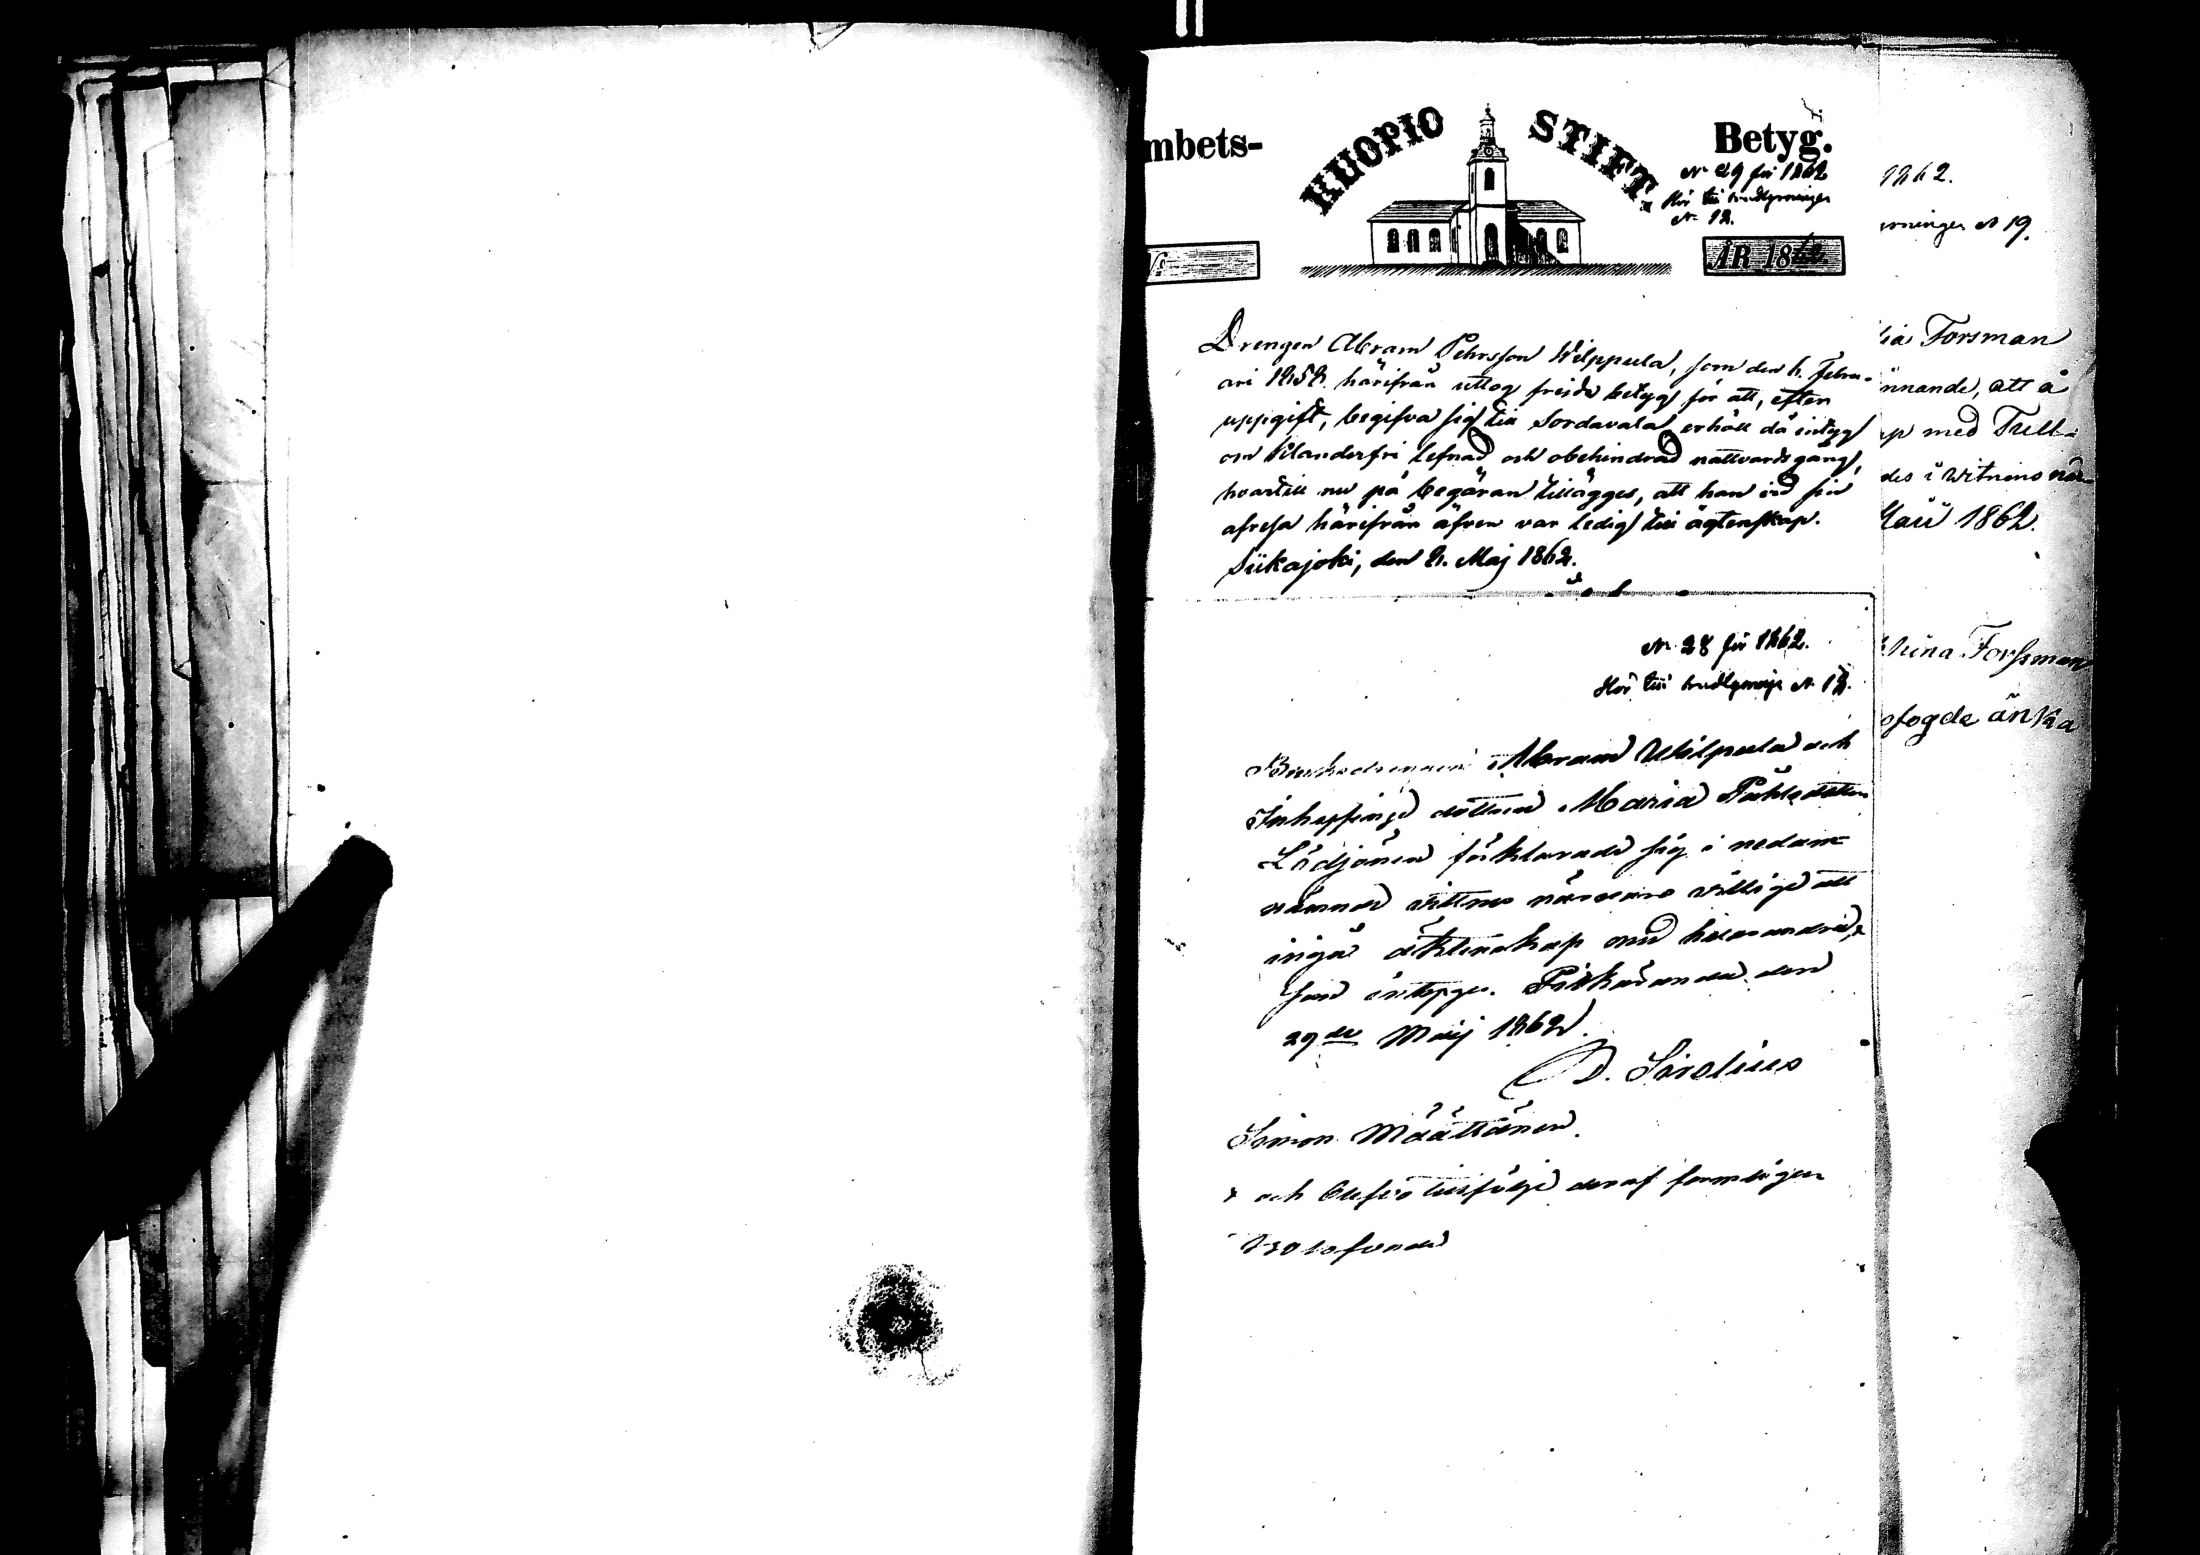 mbets-
KUOPIO STIFT.
Betyg.
N 29 för 1862
Hör till
N 12.
ÅR 1862.
Drengen Abram Pehrsson Wilppula, som den 6. Febru-
ari 1858. härifrån uttog frejde betyg för att, efter
uppgift, begifva sig till Sordavala, erhöll då intyg
om klanderfri lefnad och obehindrad nattvardsgång,
hvartill nu på begäran tillägges, att han vid sin
afresa härifrån äfven var ledig till ägtenskap.
Siikajoki, den 2. Maj 1862.
N 28 för 1862.
Hör till N. 12.
Abram Wilpula och
Inhysinge dottren Maria Påhlsdotter
Lödjönen förklarade sig i nedan-
nämnde vittnes närvaro villige att
ingå äktenskap med hvarandra,
som intyges. Pitkäranda den
29de Maij 1862.
D. Sirelius
Simon Määttänen.
och blefvo tillfölje deraf formligen
trolofvade
1862.
erninger N 19.
lia Forsman
ännande, att å
ap med Tull-
des i Witnens när-
Maii 1862.
Forssman
ofogde änka